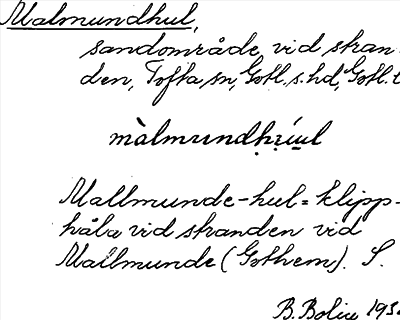 Malmundhul,
sandområde vid stran-
den, Tofta sn, Gotl. s. hd, Gotl. l
màlmundhu̯íu̱l
Mallmunde-hul = klipp-
håla vid stranden vid
Mallmunde (Gothem). S.
B. Bolin 193